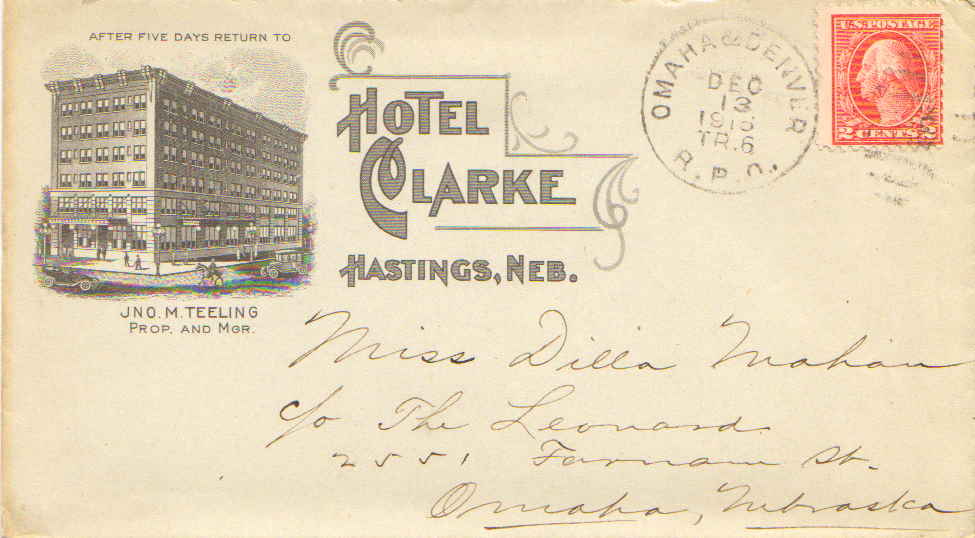 AFTER FIVE DAYS RETURN TO
HOTEL
CLARKE
HASTINGS, NEB.
JNO. M. TEELING
PROP. AND MGR.
OMAHA & DENVER
DEC
13
TR.6
R.P.O.
U.S. POSTAGE
2 CENTS 2
Miss Dilla Mahan
c/o The Leonard
2551 Farnam St.
Omaha, Nebraska